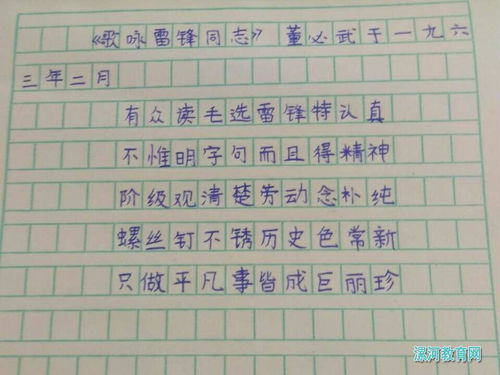 《歌咏雷锋同志》 董必武于一九六
三年二月
有众读毛选雷锋特认真
不惟明字句而且得精神
阶级观清楚劳动念朴纯
螺丝钉不锈历史色常新
只做平凡事皆成巨丽珍
漯河教育网